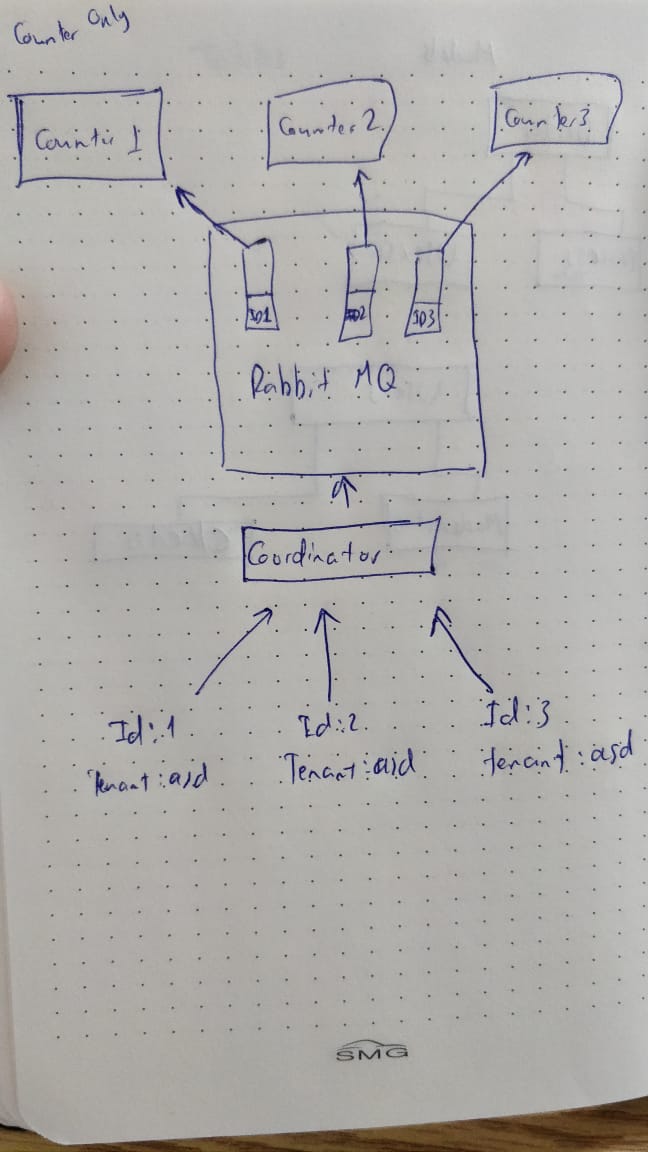 Counter Only
Counter 1
Counter 2
Counter 3
ID1
ID2
ID3
Rabbit MQ
Coordinator
Id:1
Tenant:asd
Id:2
Tenant:asd
Id:3
tenant:asd
SMG